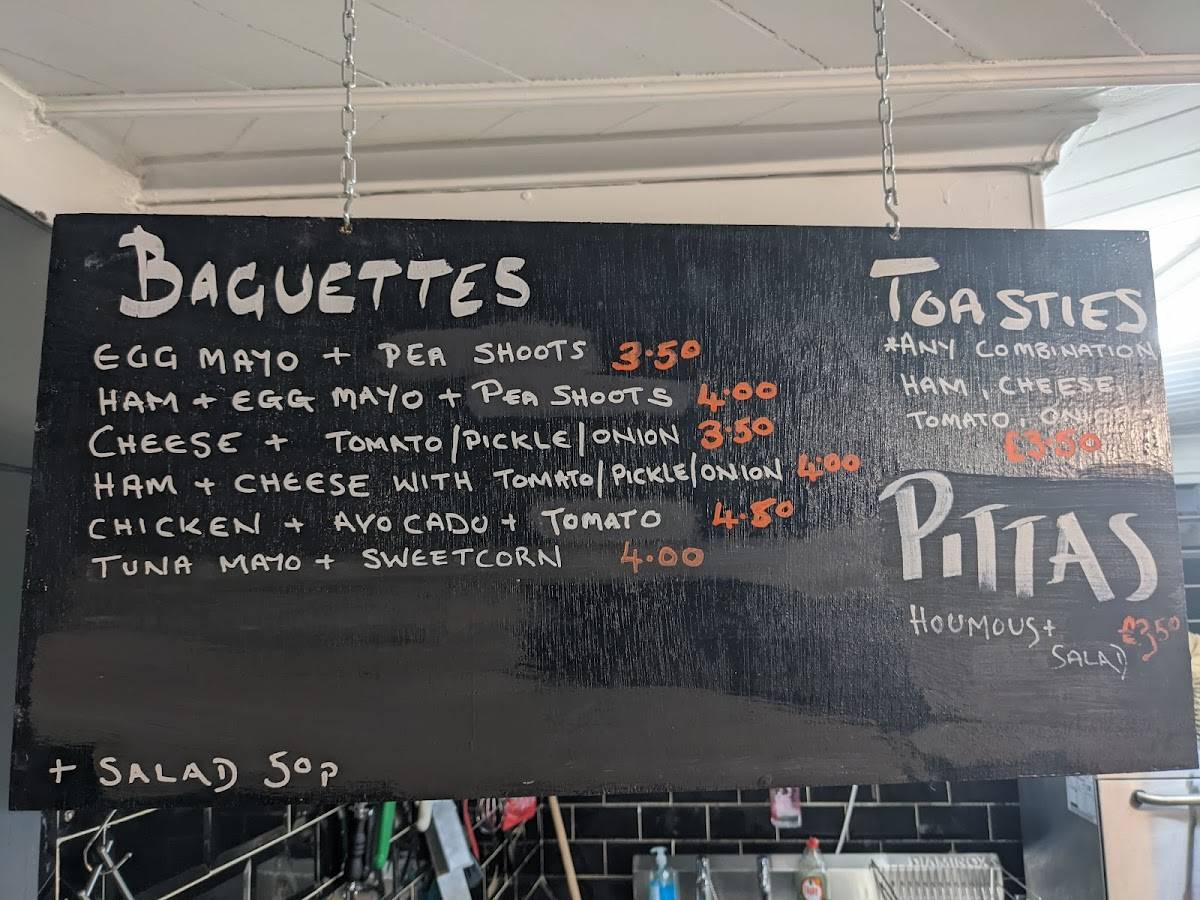 BAGUETTES
EGG MAYO + PEA SHOOTS 3.50
HAM + EGG MAYO + PEA SHOOTS 4.00
CHEESE + TOMATO/PICKLE/ONION 3.50
HAM + CHEESE WITH TOMATO/PICKLE/ONION 4.00
CHICKEN + AVOCADO + TOMATO 4.50
TUNA MAYO + SWEETCORN 4.00
+ SALAD 50p
TOASTIES
*ANY COMBINATION
HAM, CHEESE,
TOMATO, ONION
£3.50
PITTAS
HOUMOUS +
SALAD £3.50